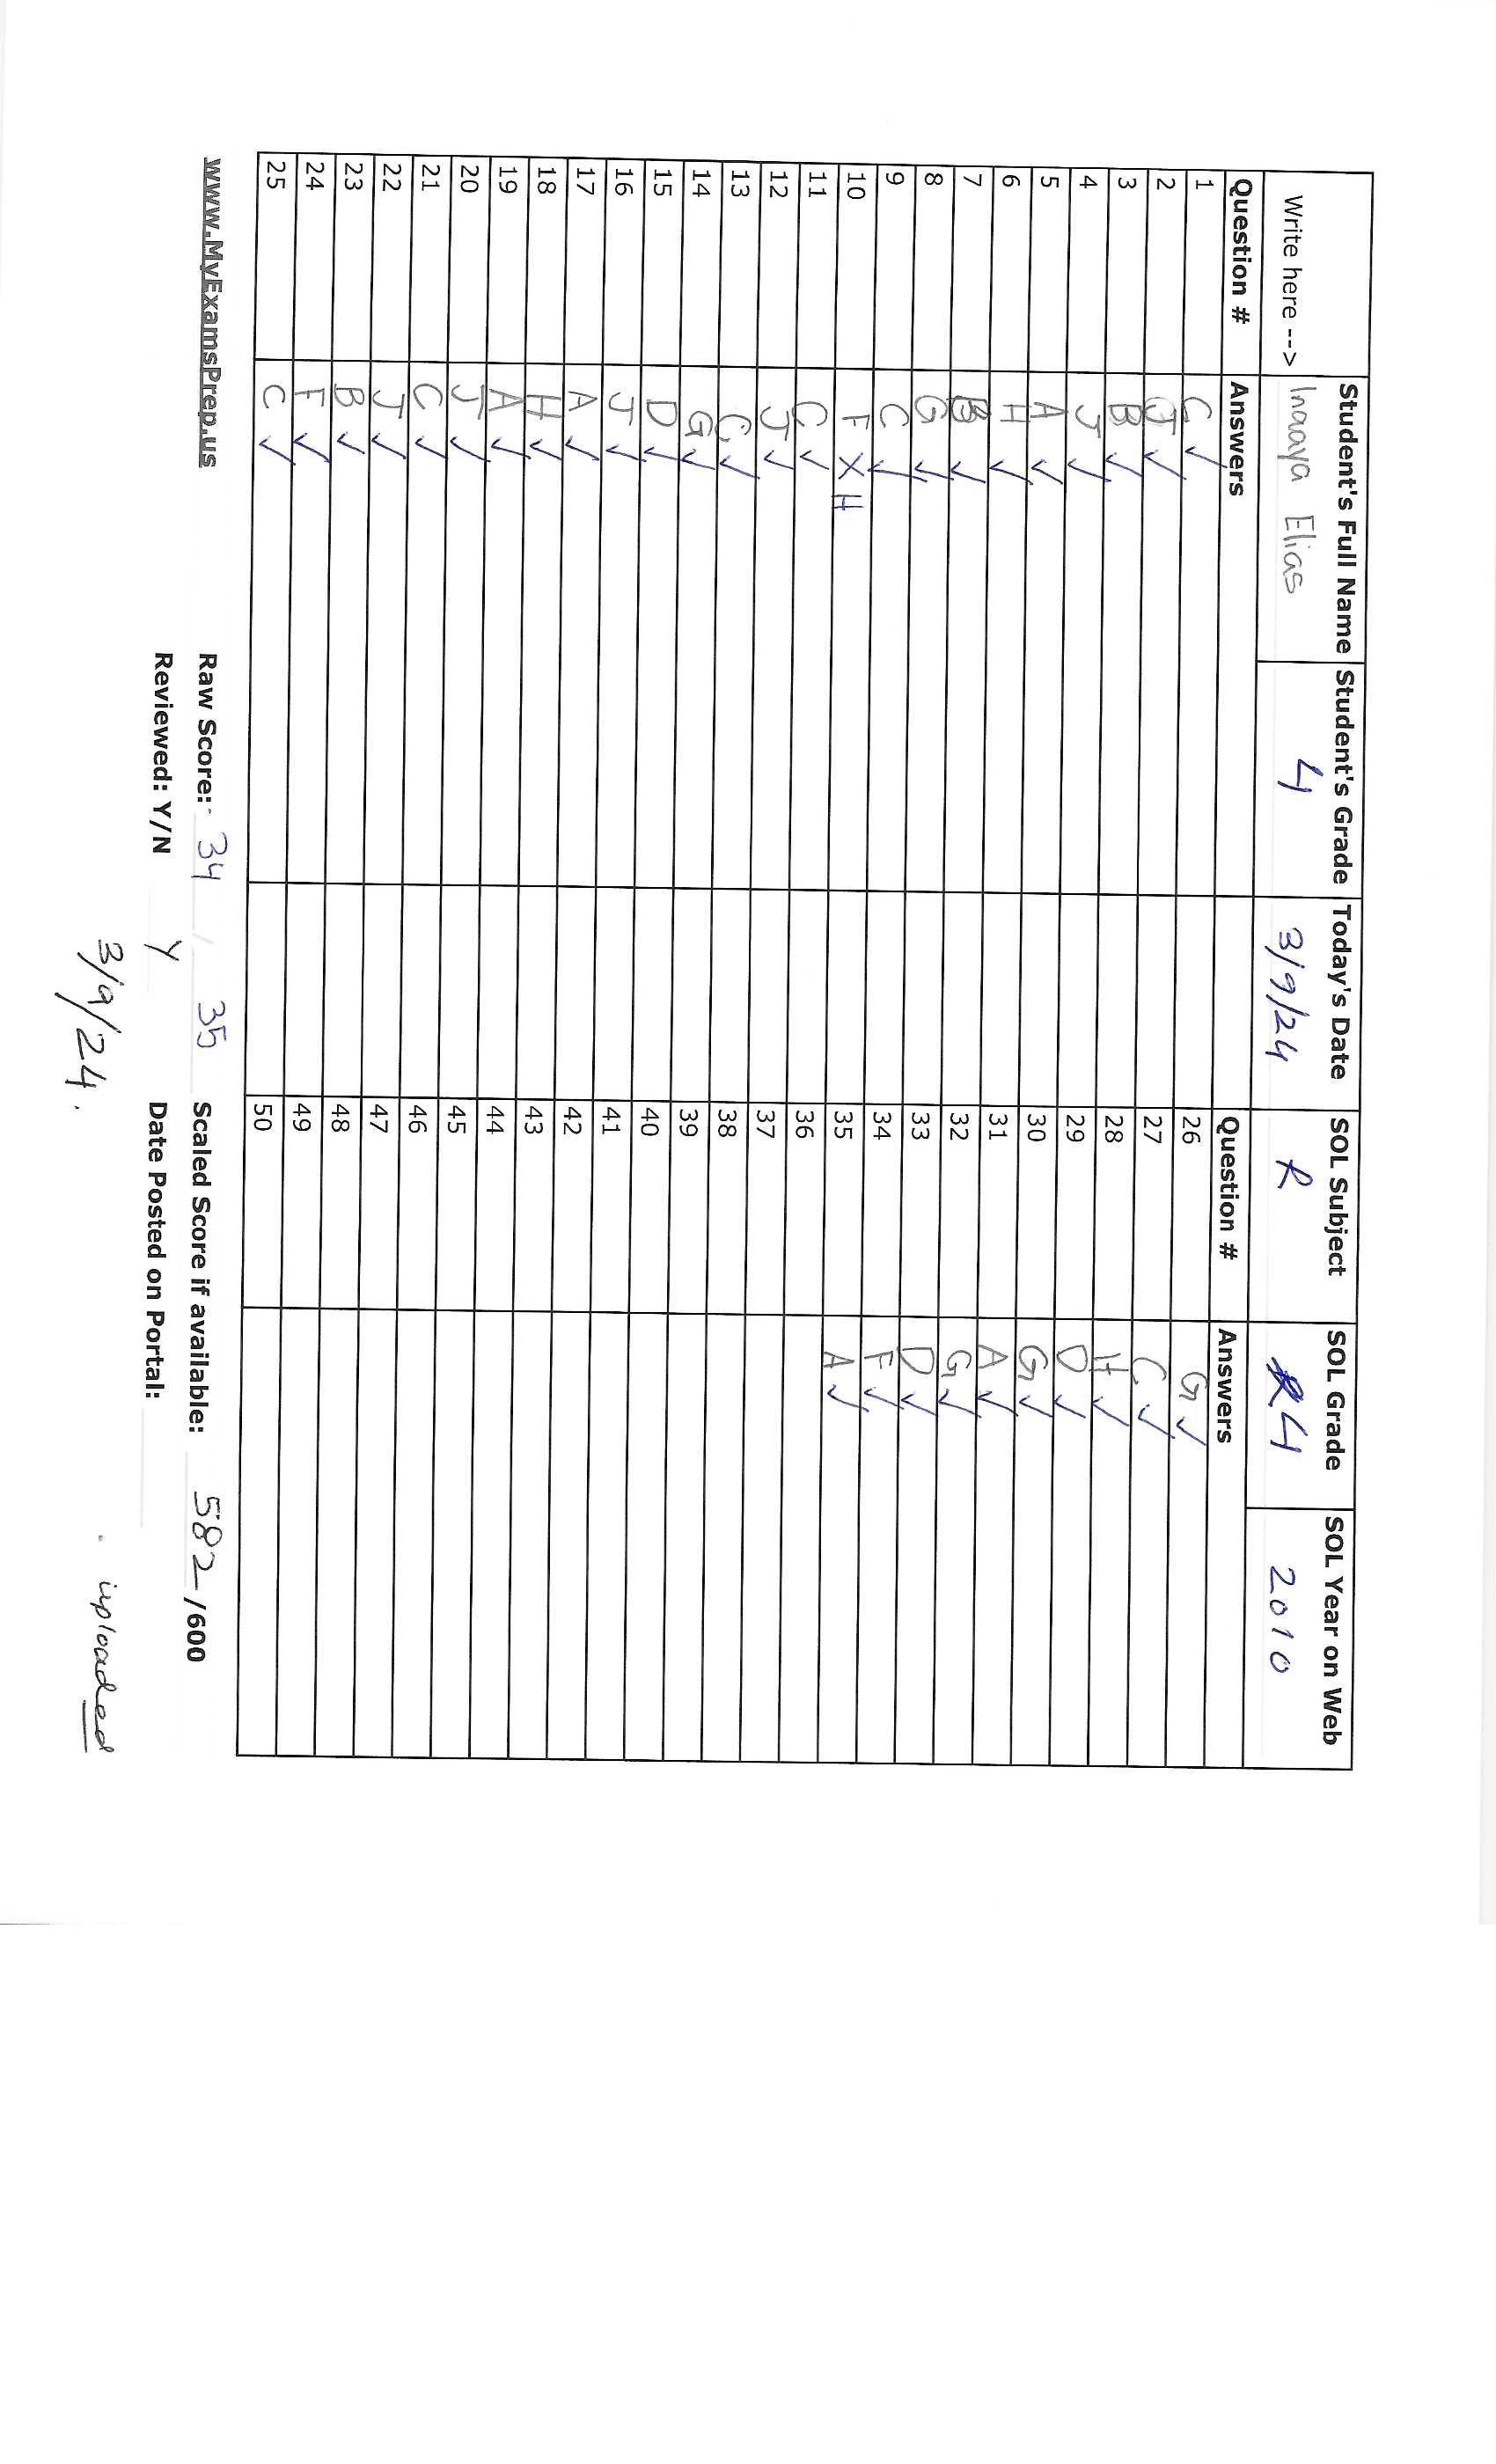 Student's Full Name Student's Grade Today's Date SOL Subject SOL Grade SOL Year on Web
Write here --> Inaaya Elias 4 3/9/24 R 4 2010
Question # Answers Question # Answers
1 C ✓ 26 G ✓
2 J ✓ 27 C ✓
3 B ✓ 28 H ✓
4 J ✓ 29 D ✓
5 A ✓ 30 G ✓
6 H ✓ 31 A ✓
7 B ✓ 32 G ✓
8 G ✓ 33 D ✓
9 C ✓ 34 F ✓
10 F X H 35 A ✓
11 C ✓ 36
12 J ✓ 37
13 C ✓ 38
14 G ✓ 39
15 D ✓ 40
16 J ✓ 41
17 A ✓ 42
18 H ✓ 43
19 A ✓ 44
20 J ✓ 45
21 C ✓ 46
22 J ✓ 47
23 B ✓ 48
24 F ✓ 49
25 C ✓ 50
www.MyExamsPrep.us Raw Score: 34 / 35 Scaled Score if available: 582 /600
Reviewed: Y/N Y Date Posted on Portal:
3/9/24. uploaded